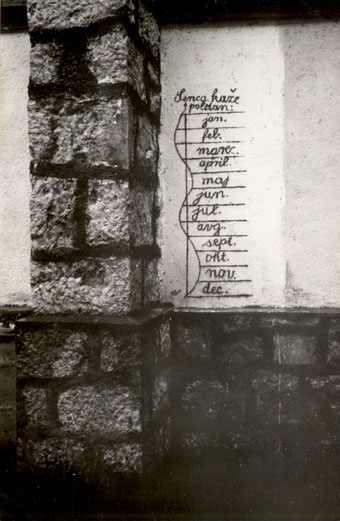 Senca kaže
poldan:
jan.
feb.
marec.
april.
maj
jun.
jul.
avg.
sept.
okt.
nov.
dec.